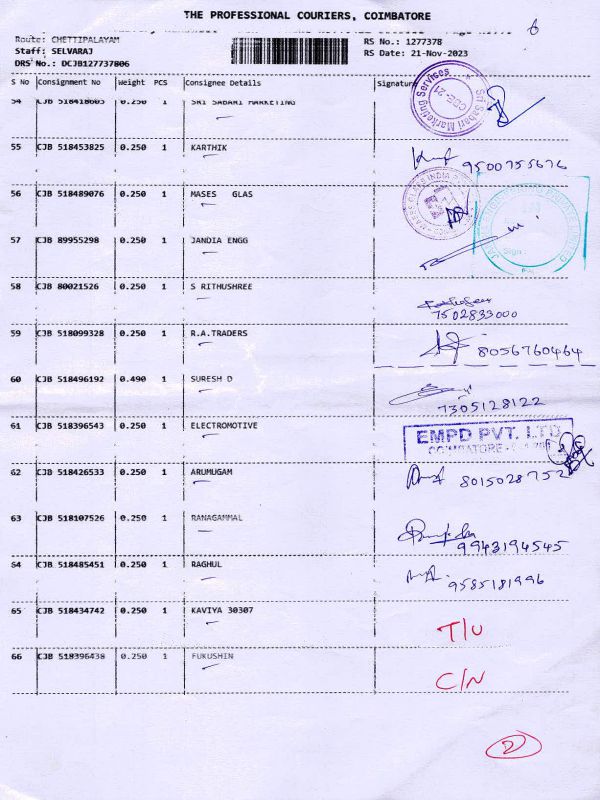 THE PROFESSIONAL COURIERS, COIMBATORE
6
Route: CHETTIPALAYAM
RS No.: 1277378
Staff: SELVARAJ
RS Date: 21-Nov-2023
DRS No.: DCJB127737806
S No Consignment No Weight PCS Consignee Details Signature
54 CJB 518418605 0.250 1 SRI SABARI MARKETING
Sri Sabari Marketing Services
CBE-21
55 CJB 518453825 0.250 1 KARTHIK
9500755676
56 CJB 518489076 0.250 1 MASES GLAS
57 CJB 89955298 0.250 1 JANDIA ENGG
58 CJB 80021526 0.250 1 S RITHUSHREE
7502833000
59 CJB 518099328 0.250 1 R.A.TRADERS
8056760464
60 CJB 518496192 0.490 1 SURESH D
7305128122
61 CJB 518396543 0.250 1 ELECTROMOTIVE
EMPD PVT. LTD
COIMBATORE
62 CJB 518426533 0.250 1 ARUMUGAM
8015028752
63 CJB 518107526 0.250 1 RANAGAMMAL
9943194545
64 CJB 518485451 0.250 1 RAGHUL
9585181996
65 CJB 518434742 0.250 1 KAVIYA 30307
T/U
66 CJB 518396438 0.250 1 FUKUSHIN
C/N
2